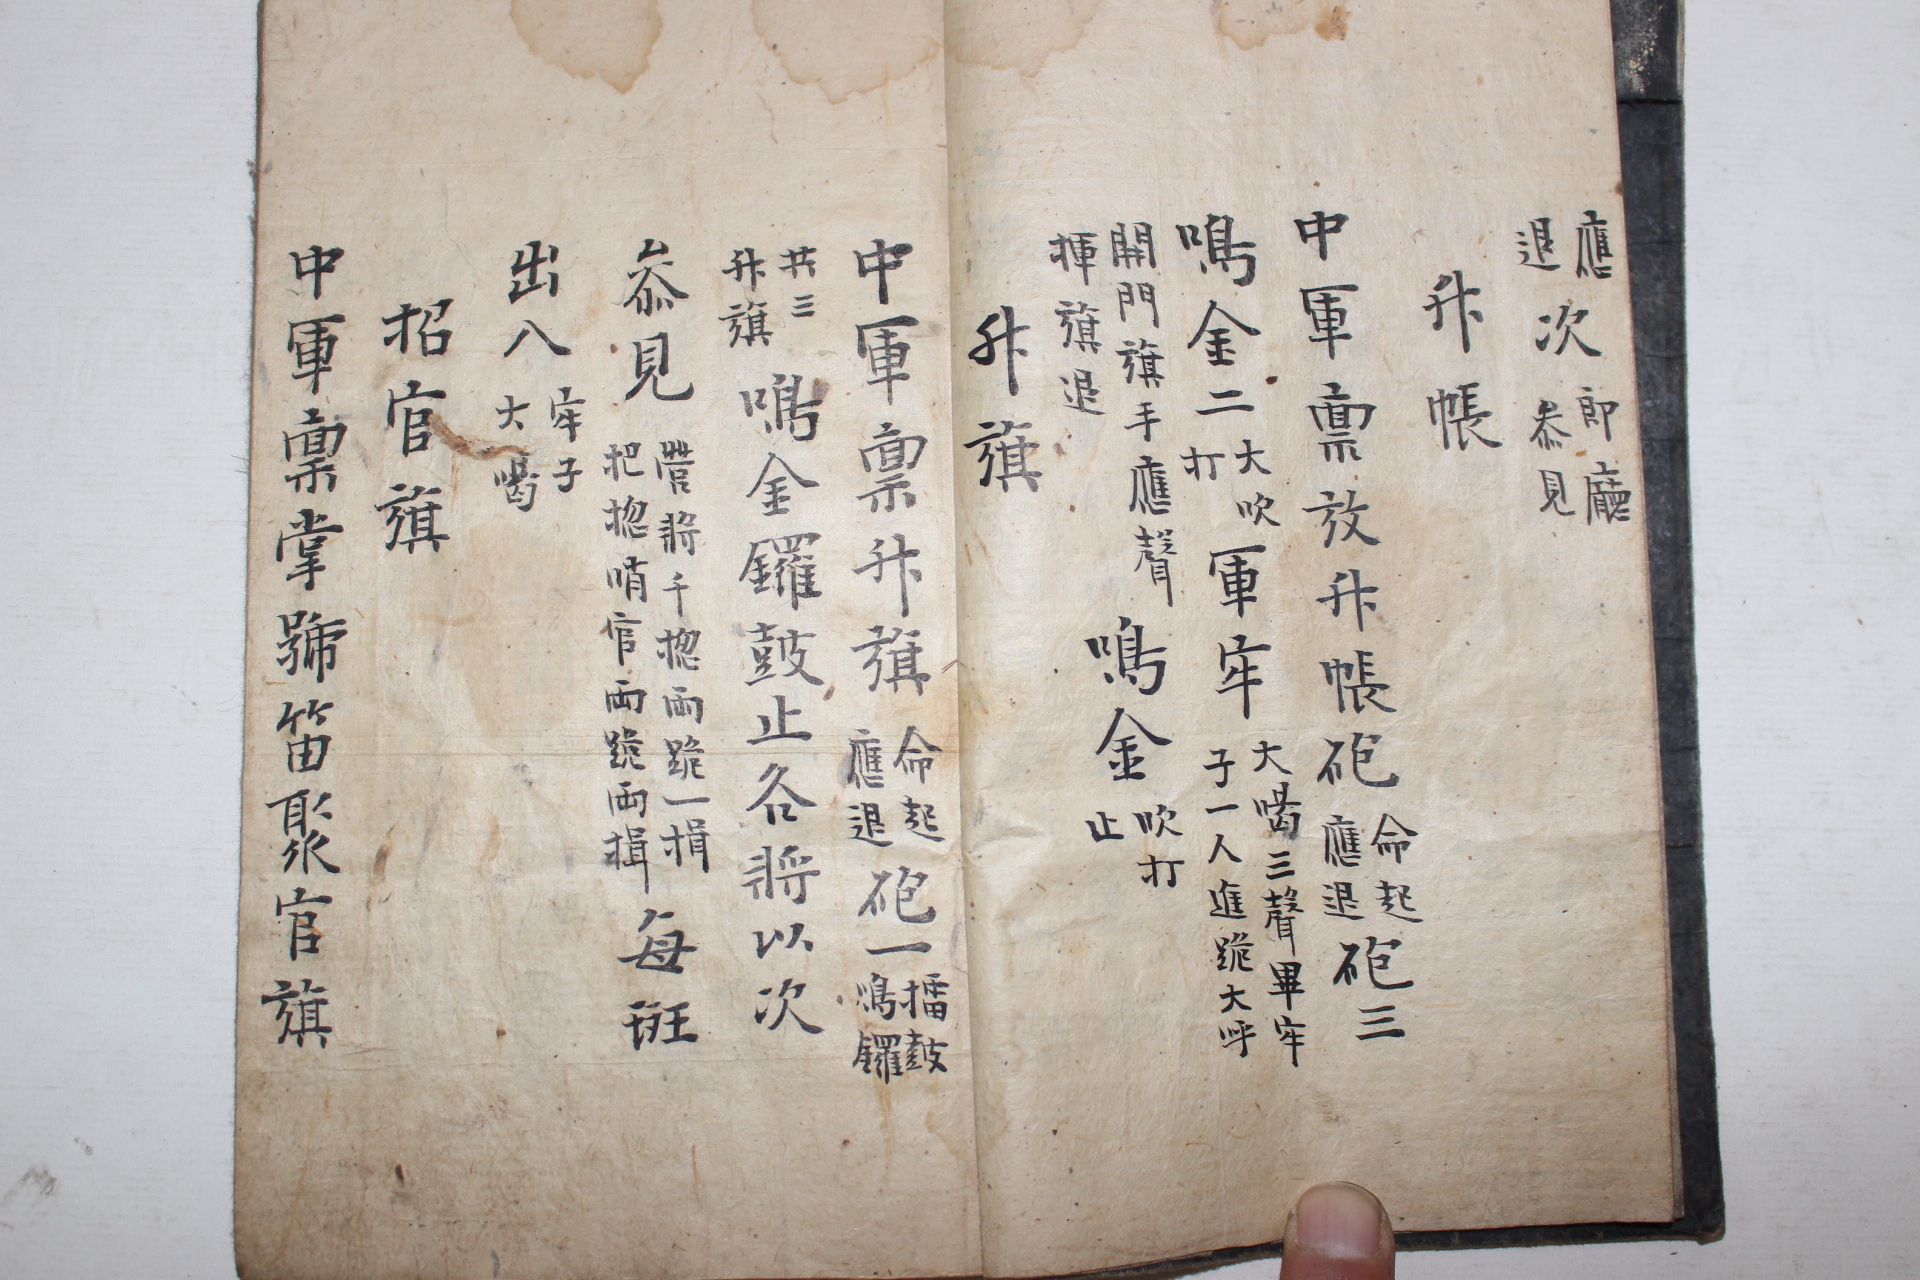 應退次卽廳叅見
升帳
中軍稟放升帳砲命起應退砲三
鳴金二大吹打軍牢大喝三聲畢牢子一人進跪大呼
開門旗手應聲揮旗退鳴金吹打止
升旗
中軍稟升旗命起應退砲一擂鼓鳴鑼
共三升旗鳴金鑼鼓止各將以次
叅見營將千摠兩跪一揖把摠哨官兩跪兩揖每班
出入牢子大喝
招官旗
中軍稟掌號笛聚官旗